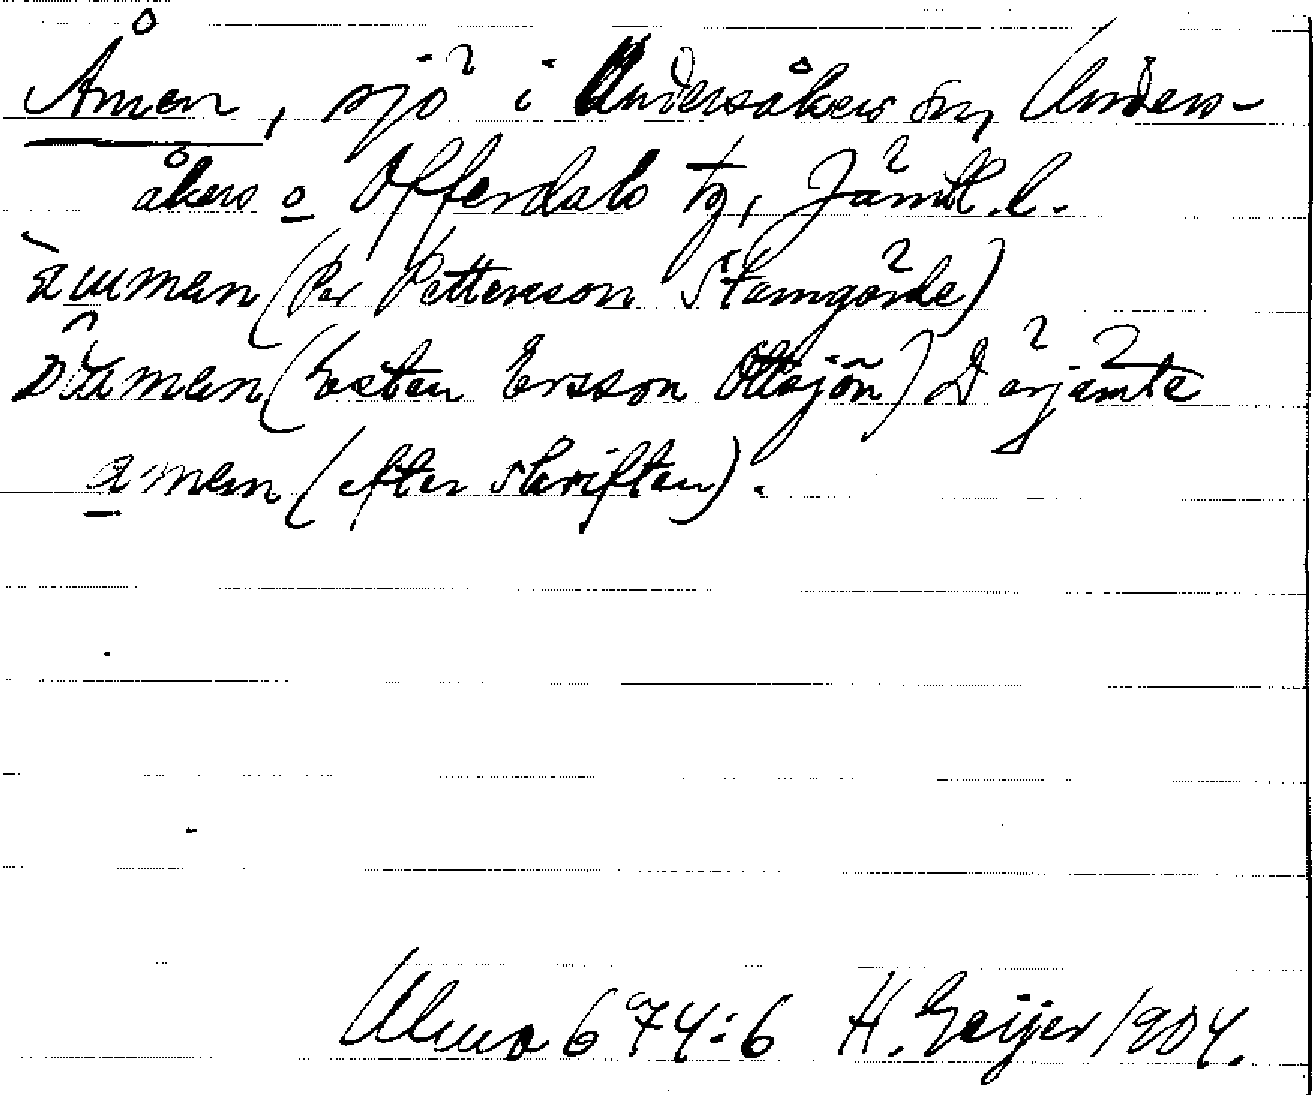 Åmen, sjö i Undersåkers sn, Unders-
åkers o Offerdals tg, Jämtl. l.
(Per Pettersson Stamgärde)
(Ersson Ottsjön) Därjämte
amen (efter skriften).
Ulma 674:6 H. Geijer 1904.